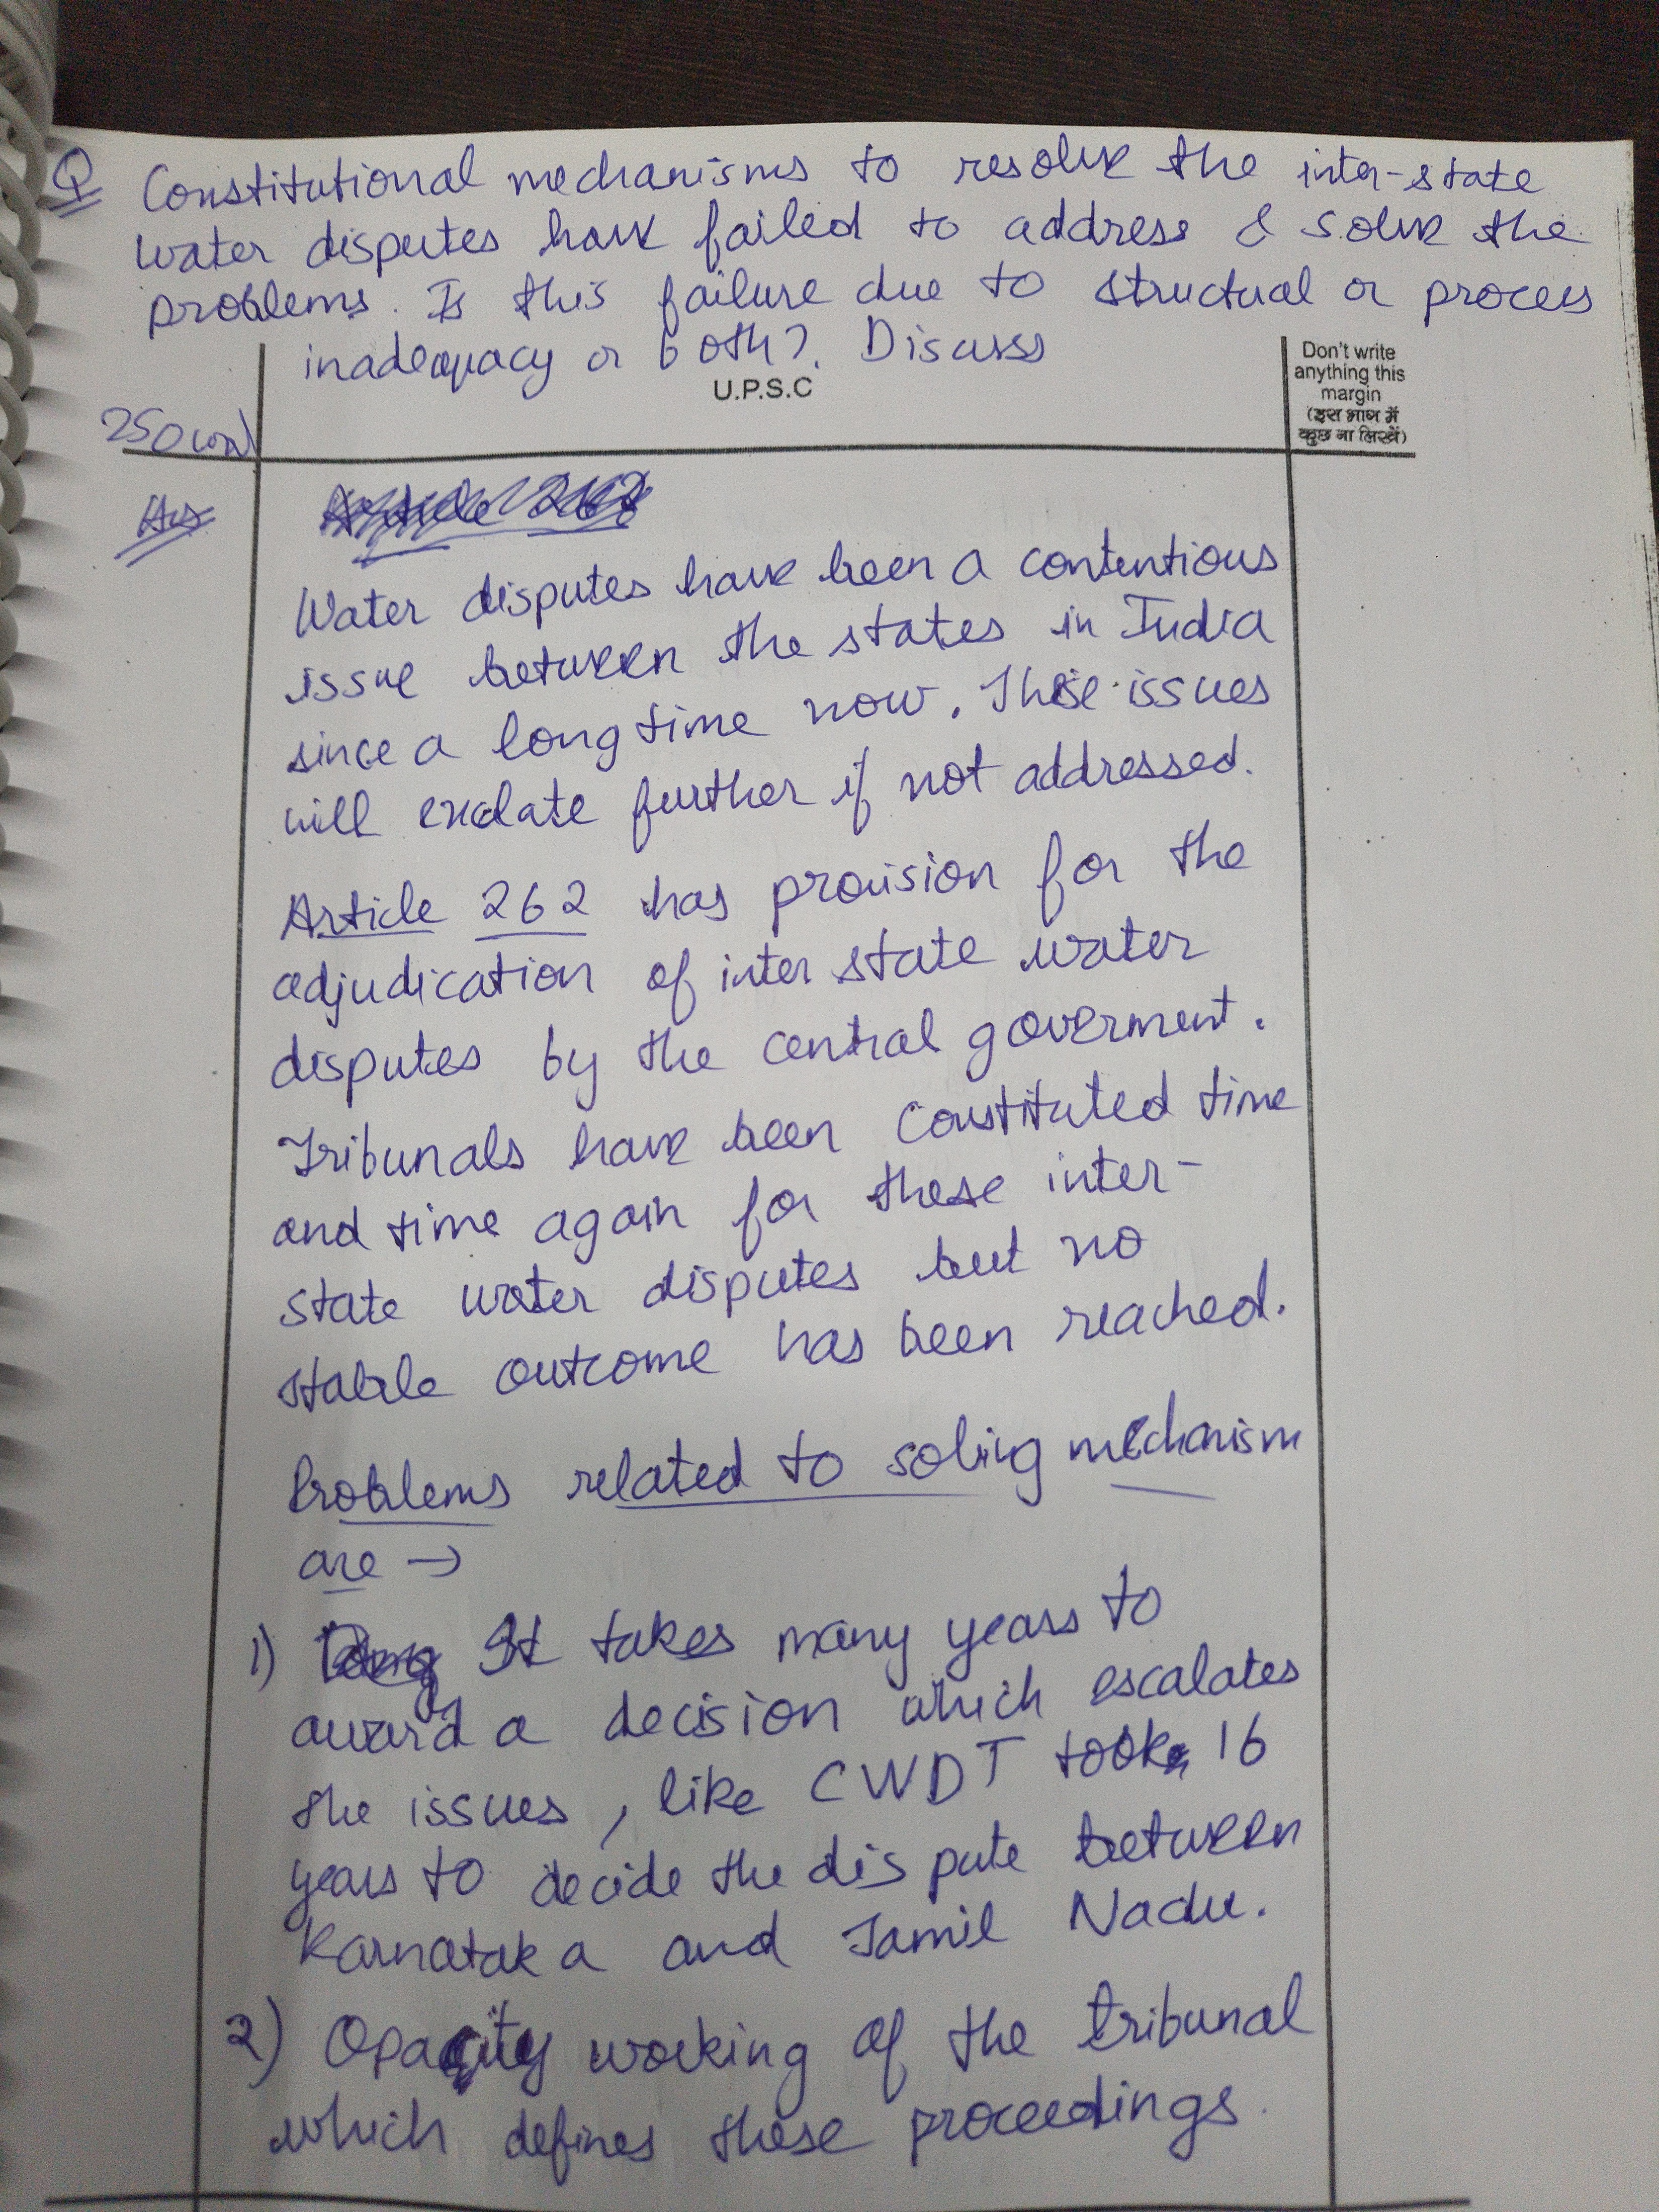 Q Constitutional mechanisms to resolve the inter-state
water disputes have failed to address & solve the
problems. Is this failure due to structual or process
inadequacy or both?. Discuss
U.P.S.C
Don't write
anything this
margin
(इस भाग में
कुछ ना लिखें)
250 word
Ans
Article 262
Water disputes have been a contentious
issue between the states in India
since a long time now. These issues
will exclate further if not addressed.
Article 262 has provision for the
adjudication of inter state water
disputes by the central goverment.
Tribunals have been constituted time
and time again for these inter-
state water disputes but no
stable outcome has been reached.
Problems related to solving mechanism
are →
1) It takes many years to
award a decision which escalates
the issues, like CWDT took 16
years to decide the dispute between
Karnataka and Tamil Nadu.
2) Opacity working of the tribunal
which defines these proceedings.